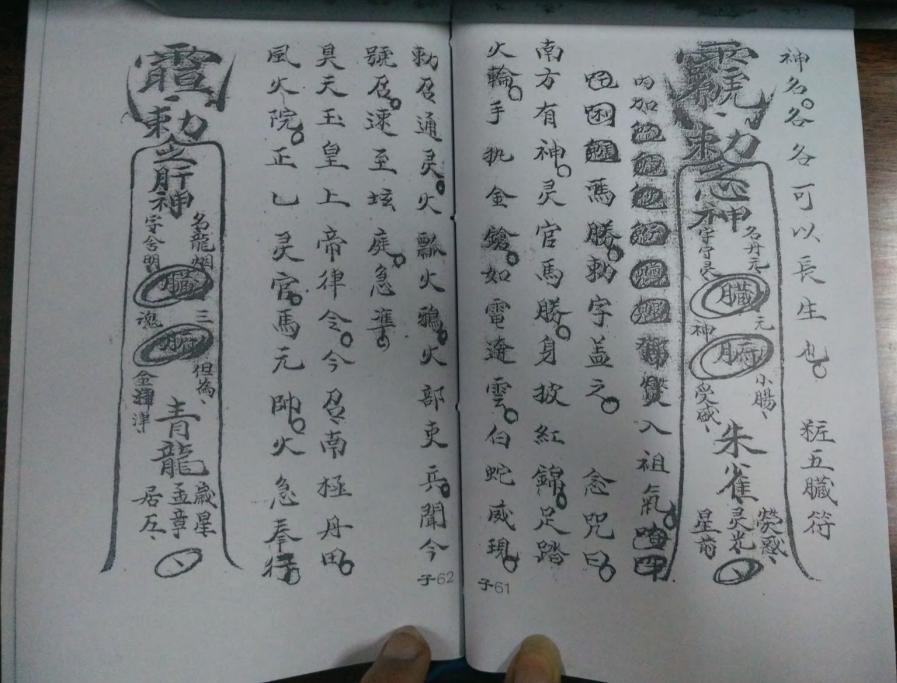 神名各各可以長生也 粧五臟符
勅
心神
名丹元
字守灵
臟
元
神
腑
小腸
受盛
朱雀
熒惑
灵光
星前
內加
入祖氣
馮勝勅字蓋之 念咒曰
南方有神灵官馬勝身披紅錦足踏
火輪手执金鎗如電遶雲白蛇威現
子61
勅召通灵火瓢火鴉火部吏兵聞今
號召速至坛庭急準
昊天玉皇上帝律令今召南極丹田
風火院正乙灵官馬元帥火急奉行
勅
肝神
名龍烟
字含明
臟
三
魂
腑
胆為
金津
青龍
歲星
孟章
居左
子62